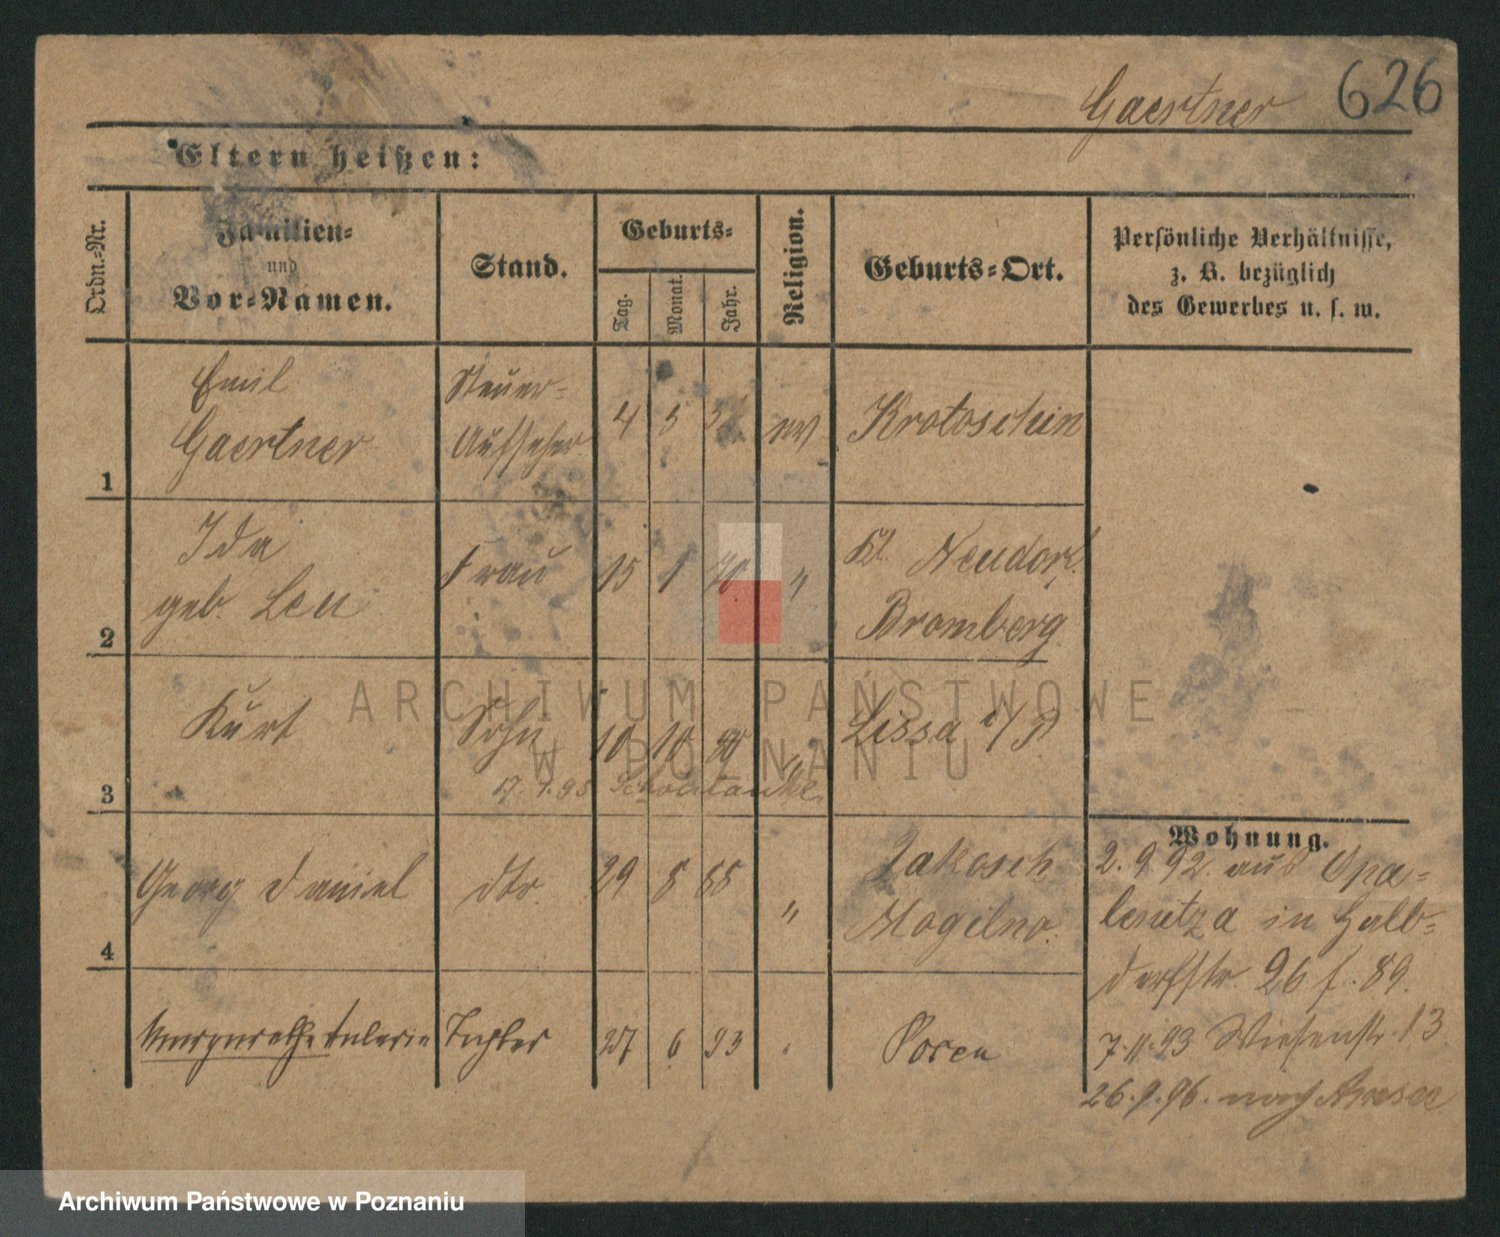 Gaertner 626
Eltern heißen:
Ordn.-Nr.
Familien-
und
Vor-Namen.
Stand.
Geburts-
Tag.
Monat.
Jahr.
Religion.
Geburts-Ort.
Persönliche Verhältnisse,
z. B. bezüglich
des Gewerbes u. s. w.
1
Emil
Gaertner
Steuer-
Aufseher
4 5
Krotoschin
2
Ida
geb. Leu
Frau
15 1 70. "
Kl. Neudorf.
Bromberg
3
Kurt
Sohn
10 10 "
Lissa i/P
Schönlanke
4
Georg Daniel
dto.
29 8 88 "
Pakosch
Mogilno.
Margarethe Valerie
Tochter
27 6 93 "
Posen
Wohnung.
2.9.92. aus Opa-
lenitza in Halb-
dorfstr. 26 f. 89.
7.11.93 Wiesenstr. 13
26.9.96. nach
ARCHIWUM PAŃSTWOWE
W POZNANIU
Archiwum Państwowe w Poznaniu